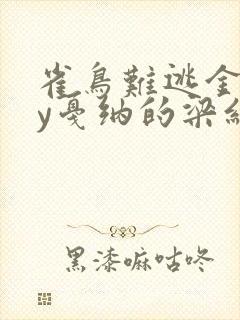 雀鳥難逃金
y戛纳的梁
黑漆嘛咕咚